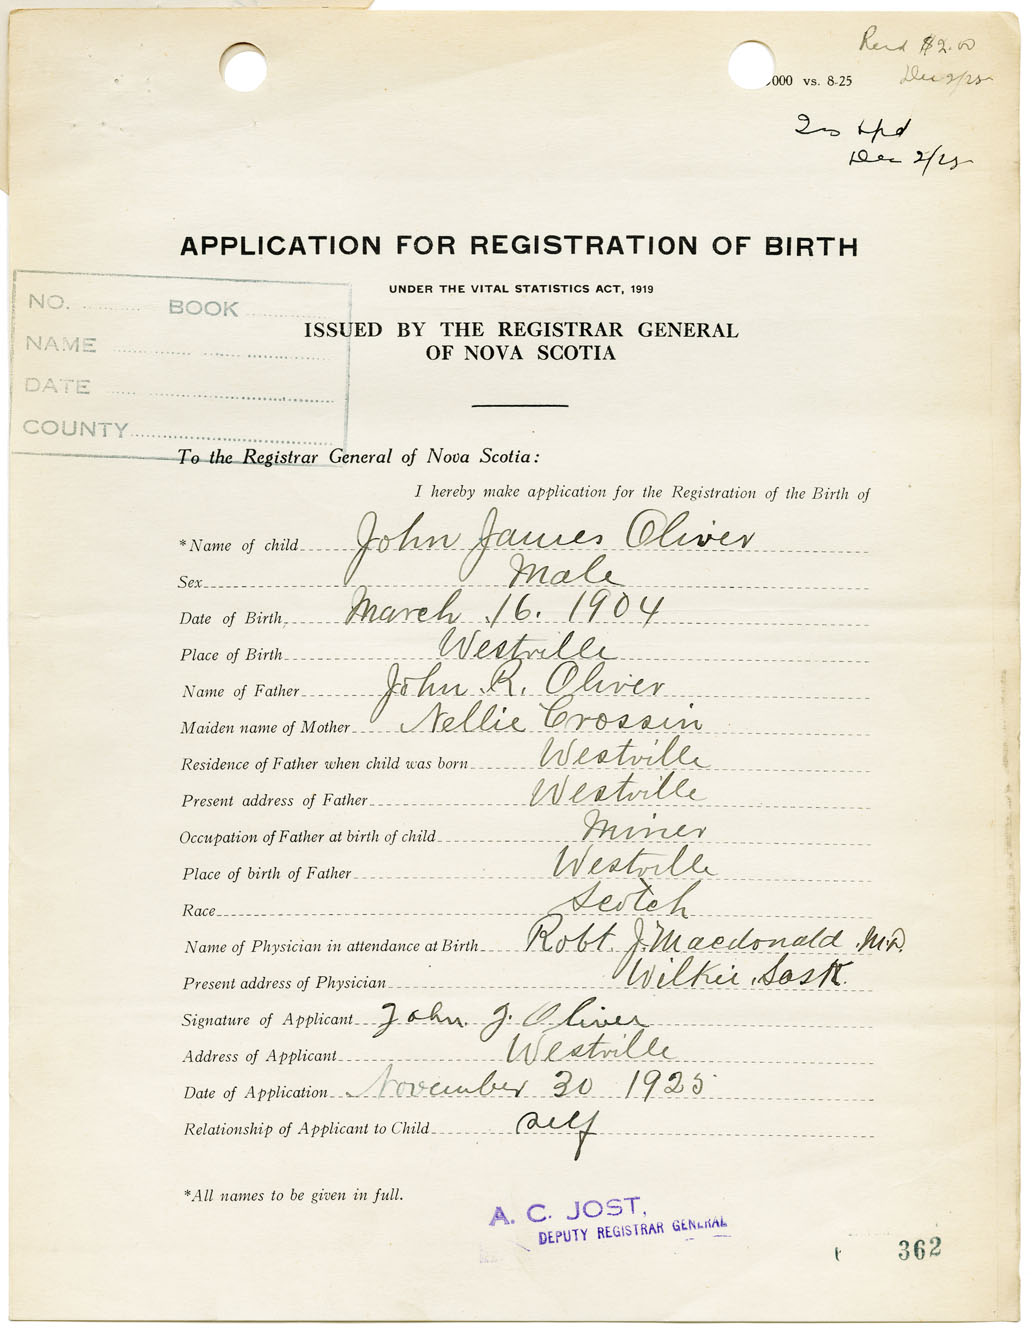 Recd $2.00
Dec 2/25
000 vs. 8-25
Dec 2/25
APPLICATION FOR REGISTRATION OF BIRTH
UNDER THE VITAL STATISTICS ACT, 1919
ISSUED BY THE REGISTRAR GENERAL
OF NOVA SCOTIA
NO. BOOK
NAME
DATE
COUNTY
To the Registrar General of Nova Scotia:
I hereby make application for the Registration of the Birth of
*Name of child John James Oliver
Sex Male
Date of Birth March 16. 1904
Place of Birth Westville
Name of Father John R. Oliver
Maiden name of Mother Nellie Crossin
Residence of Father when child was born Westville
Present address of Father Westville
Occupation of Father at birth of child Miner
Place of birth of Father Westville
Race Scotch
Name of Physician in attendance at Birth Robt. J. Macdonald M.D.
Present address of Physician Wilkie, Sask.
Signature of Applicant John. J. Oliver
Address of Applicant Westville
Date of Application November 30 1925
Relationship of Applicant to Child self
*All names to be given in full.
A. C. JOST,
DEPUTY REGISTRAR GENERAL
362